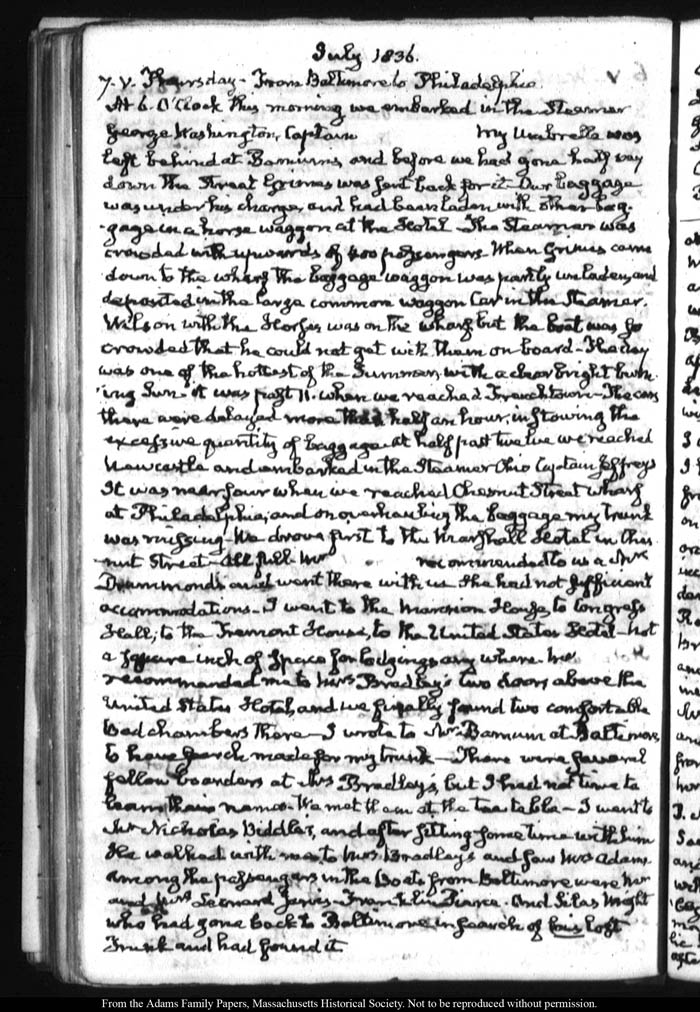 July 1836.
7. V. Thursday - From Baltimore to Philadelphia.
At 6. O'Clock this morning we embarked in the Steamer
George Washington, Captain my Umbrella was
left behind at Barnum's, and before we had gone half way
down the Street Grimes was sent back for it - Our baggage
was under his charge, and had been laden with other bag-
gage in a horse waggon at the Hotel - The Steamer was
crowded with upwards of 400 passengers. When Grimes came
down to the wharf the baggage waggon was partly unladen, and
deposited in the large common waggon Car in the Steamer.
Wilson with the Horses was on the wharf but the boat was so
crowded that he could not get with them on board - The day
was one of the hottest of the Summer, with a clear bright burn-
ing Sun - it was past 11. when we reached Frenchtown - The cars
there were delayed more than half an hour, in stowing the
excessive quantity of baggage - at half past twelve we reached
Newcastle and embarked in the Steamer Ohio Captain Jeffreys
It was near four when we reached Chesnut Street wharf
at Philadelphia, and on overhauling the baggage my trunk
was missing - We drove first to the Marshall Hotel in Ches-
nut Street - All full. Mr recommended to us a Mrs
Drummond's and went there with us She had not sufficient
accommodations - I went to the Mansion House, to Congress
Hall, to the Tremont House, to the United States Hotel - not
a square inch of space for lodgings any where.
recommended me to Mrs Bradley's two doors above the
United States Hotel, and we finally found two comfortable
bed chambers there - I wrote to Mr. Barnum at Baltimore,
to have search made for my trunk - There were several
fellow boarders at Mrs Bradley's, but I had not time to
learn their names. We met them at the tea table - I went to
Mr Nicholas Biddle's, and after sitting some time with him
He walked with me to Mrs Bradley's and saw Mrs Adams
among the passengers in the Boats from Baltimore were Mr
and Mrs Leonard Jarvis - Franklin Pierce - And Silas Wright
who had gone back to Baltimore in search of his lost
Trunk and had found it
From the Adams Family Papers, Massachusetts Historical Society. Not to be reproduced without permission.